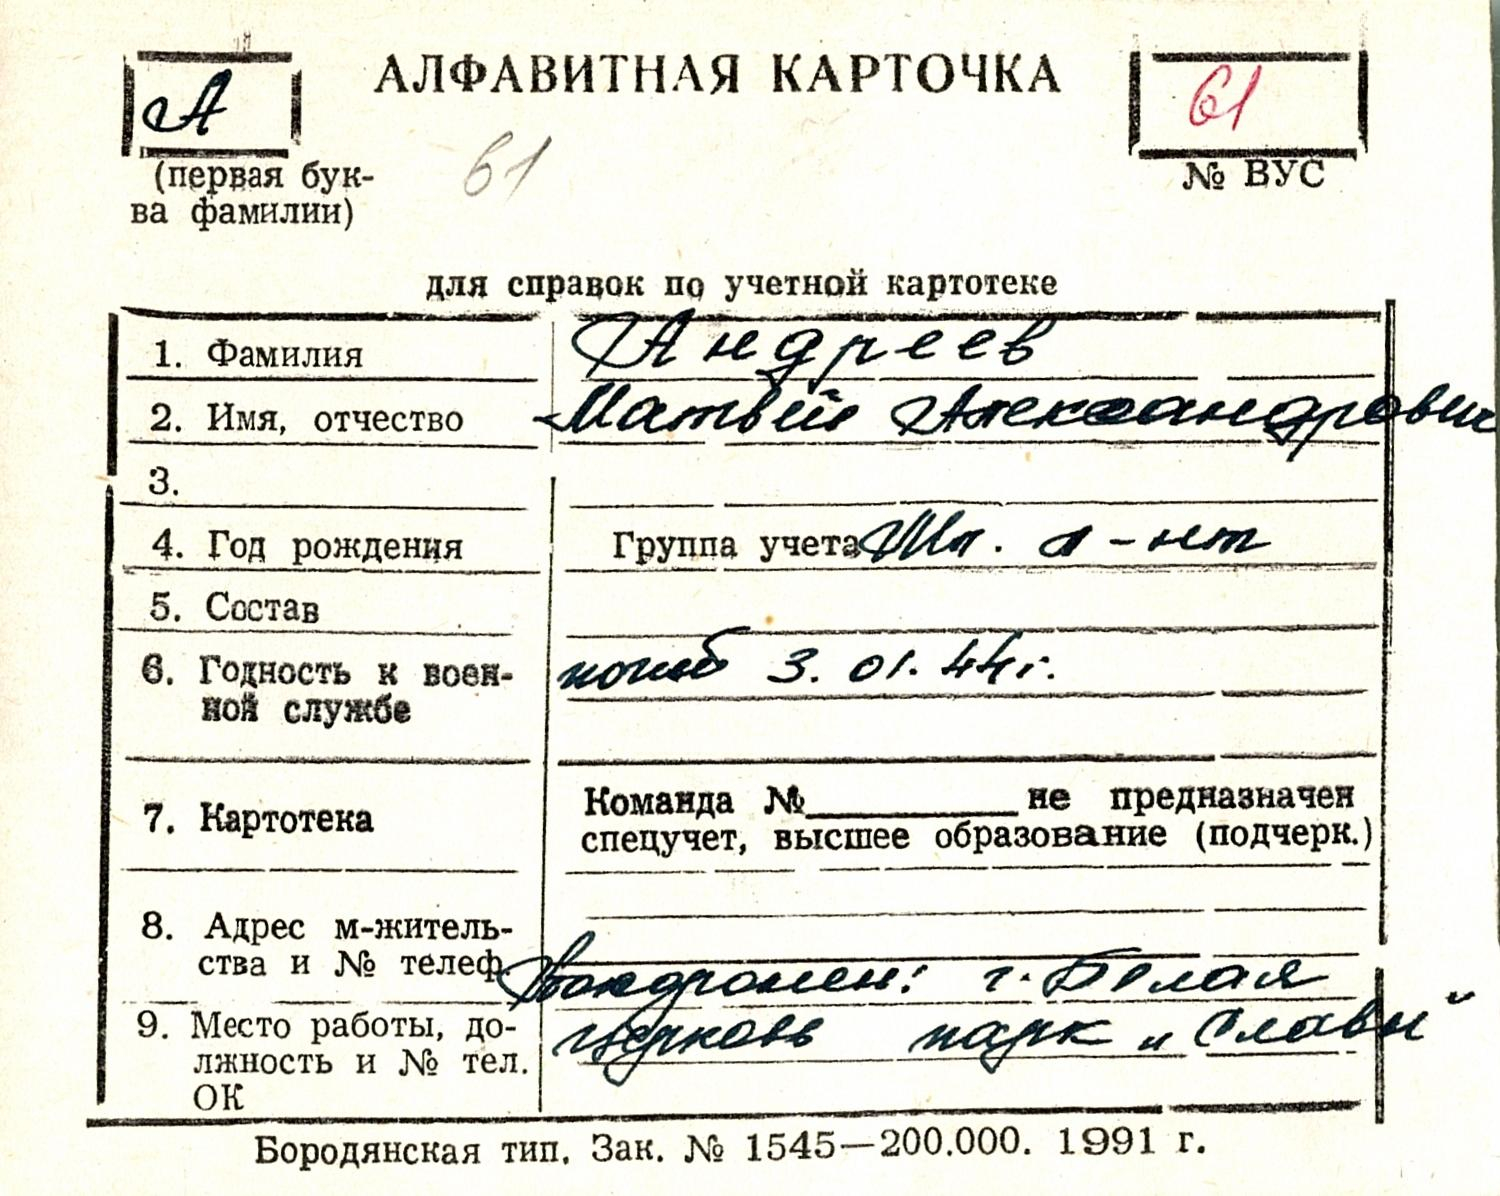 А
АЛФАВИТНАЯ КАРТОЧКА
61
(первая бук-
ва фамилии)
61
№ ВУС
для справок по учетной картотеке
1. Фамилия Андреев
2. Имя, отчество Матвей Александрович
3.
4. Год рождения Группа учета Мл. л-нт
5. Состав
6. Годность к воен-
ной службе погиб 3.01.44г.
7. Картотека Команда №__________ не предназначен
спецучет, высшее образование (подчерк.)
8. Адрес м-житель-
ства и № телеф. Похоронен: г. Белая
9. Место работы, до-
лжность и № тел.
ОК Церковь парк „Славы"
Бородянская тип. Зак. № 1545—200.000. 1991 г.